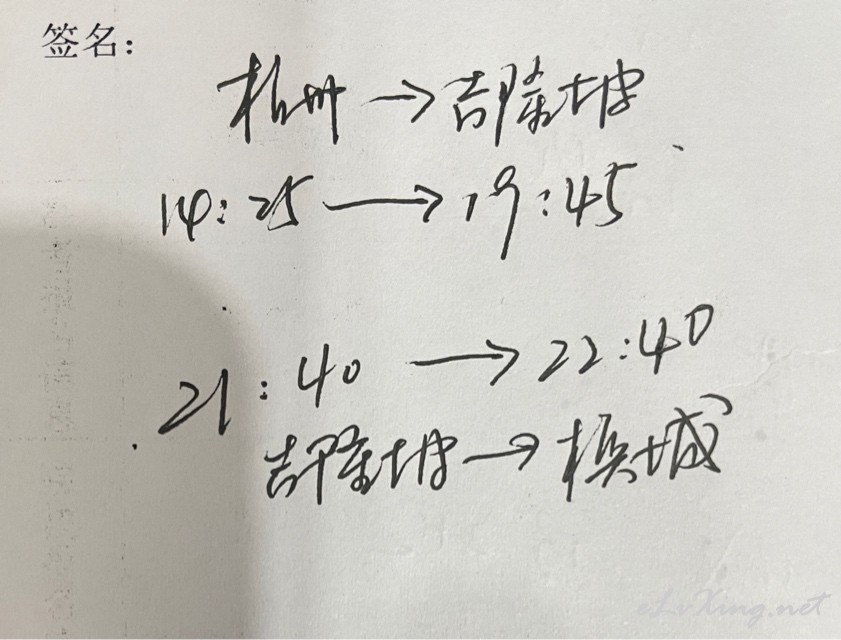 签名:
杭州→吉隆坡
14:25→19:45
21:40→22:40
吉隆坡→槟城
eLvXing.net